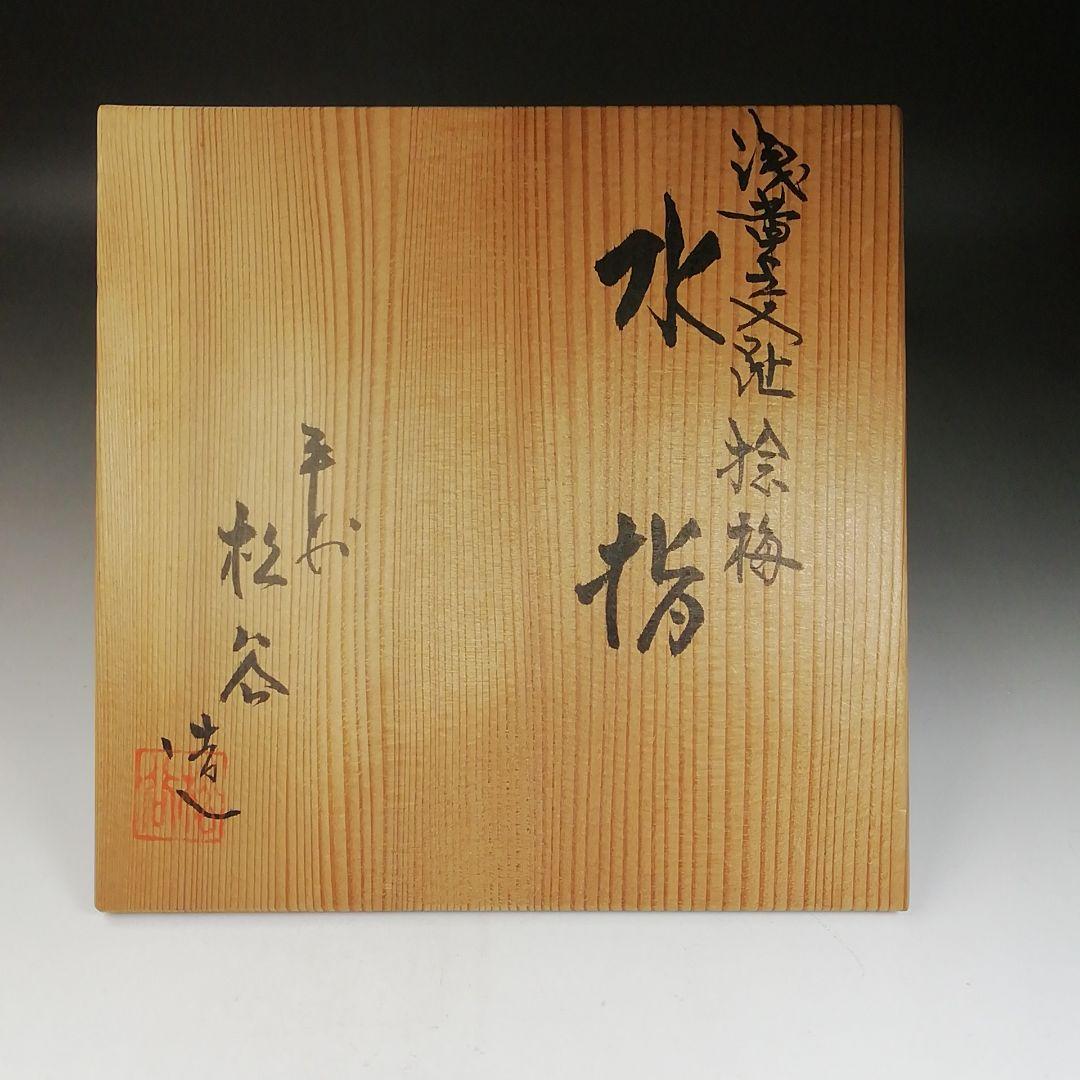 浅黄交趾 捻梅
水指
平安
松谷
造